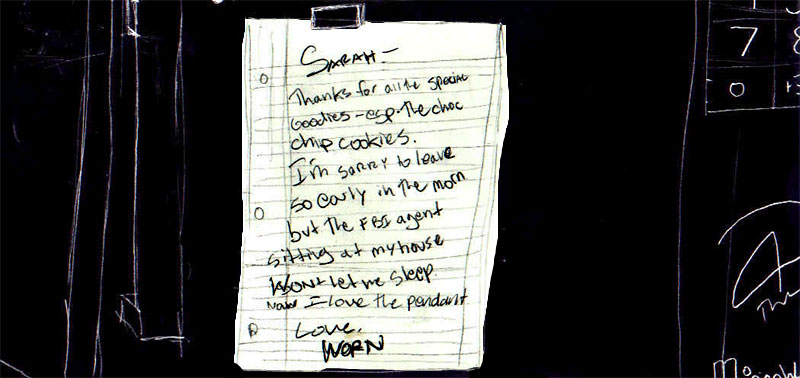 SARAH-
Thanks for all the special
Goodies - esp. the choc
chip cookies.
I'm sorry to leave
so early in the morn
but the FBI agent
sitting at my house
WON't let me sleep.
I love the pendant
Love,
WORN
7
0